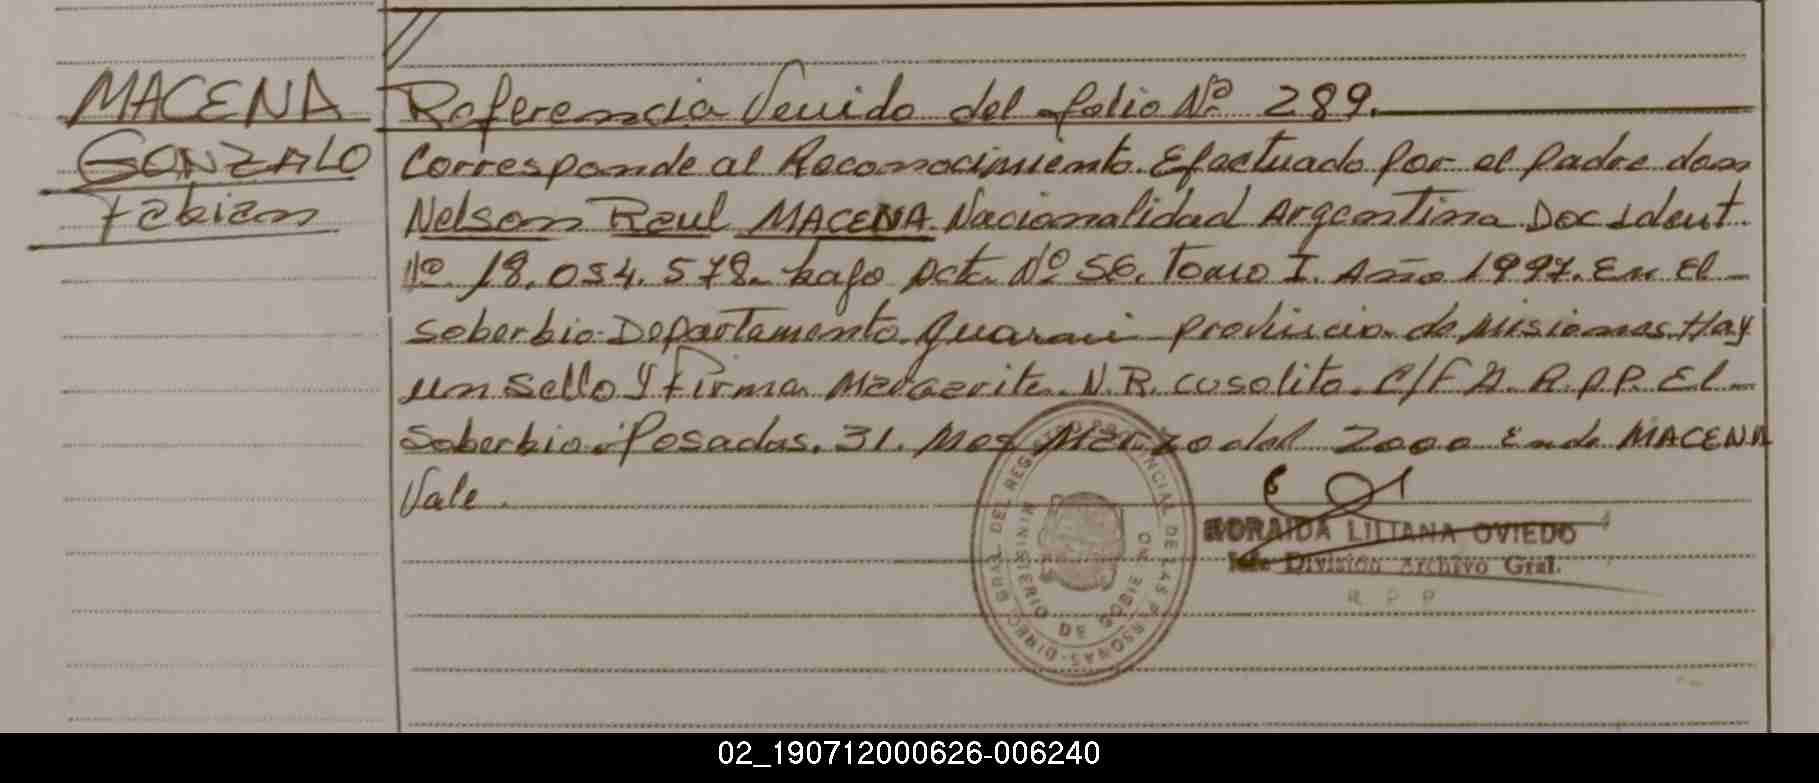 MACENA
GONZALO
Fabian
Referencia Venido del folio Nº 289.
Corresponde al Reconocimiento Efectuado por el padre don
Nelson Raul MACENA Nacionalidad Argentina Doc Ident.
Nº 18.054.578. bajo Acta Nº 56. Tomo I. Año 1997. En El
Soberbio Departamento Guarani provincia de Misiones. Hay
un sello y Firma Margarita N.R. Cusolito. C/F D. R.P.P. El
Soberbio. Posadas. 31. Mes Marzo del 2000 Enda MACENA
Vale.
DIREC. GRAL. DEL REG. PROVINCIAL DE LAS PERSONAS
MINISTERIO DE GOBIERNO
ZORAIDA LILIANA OVIEDO
Jefe División Archivo Gral.
R P P
02_190712000626-006240